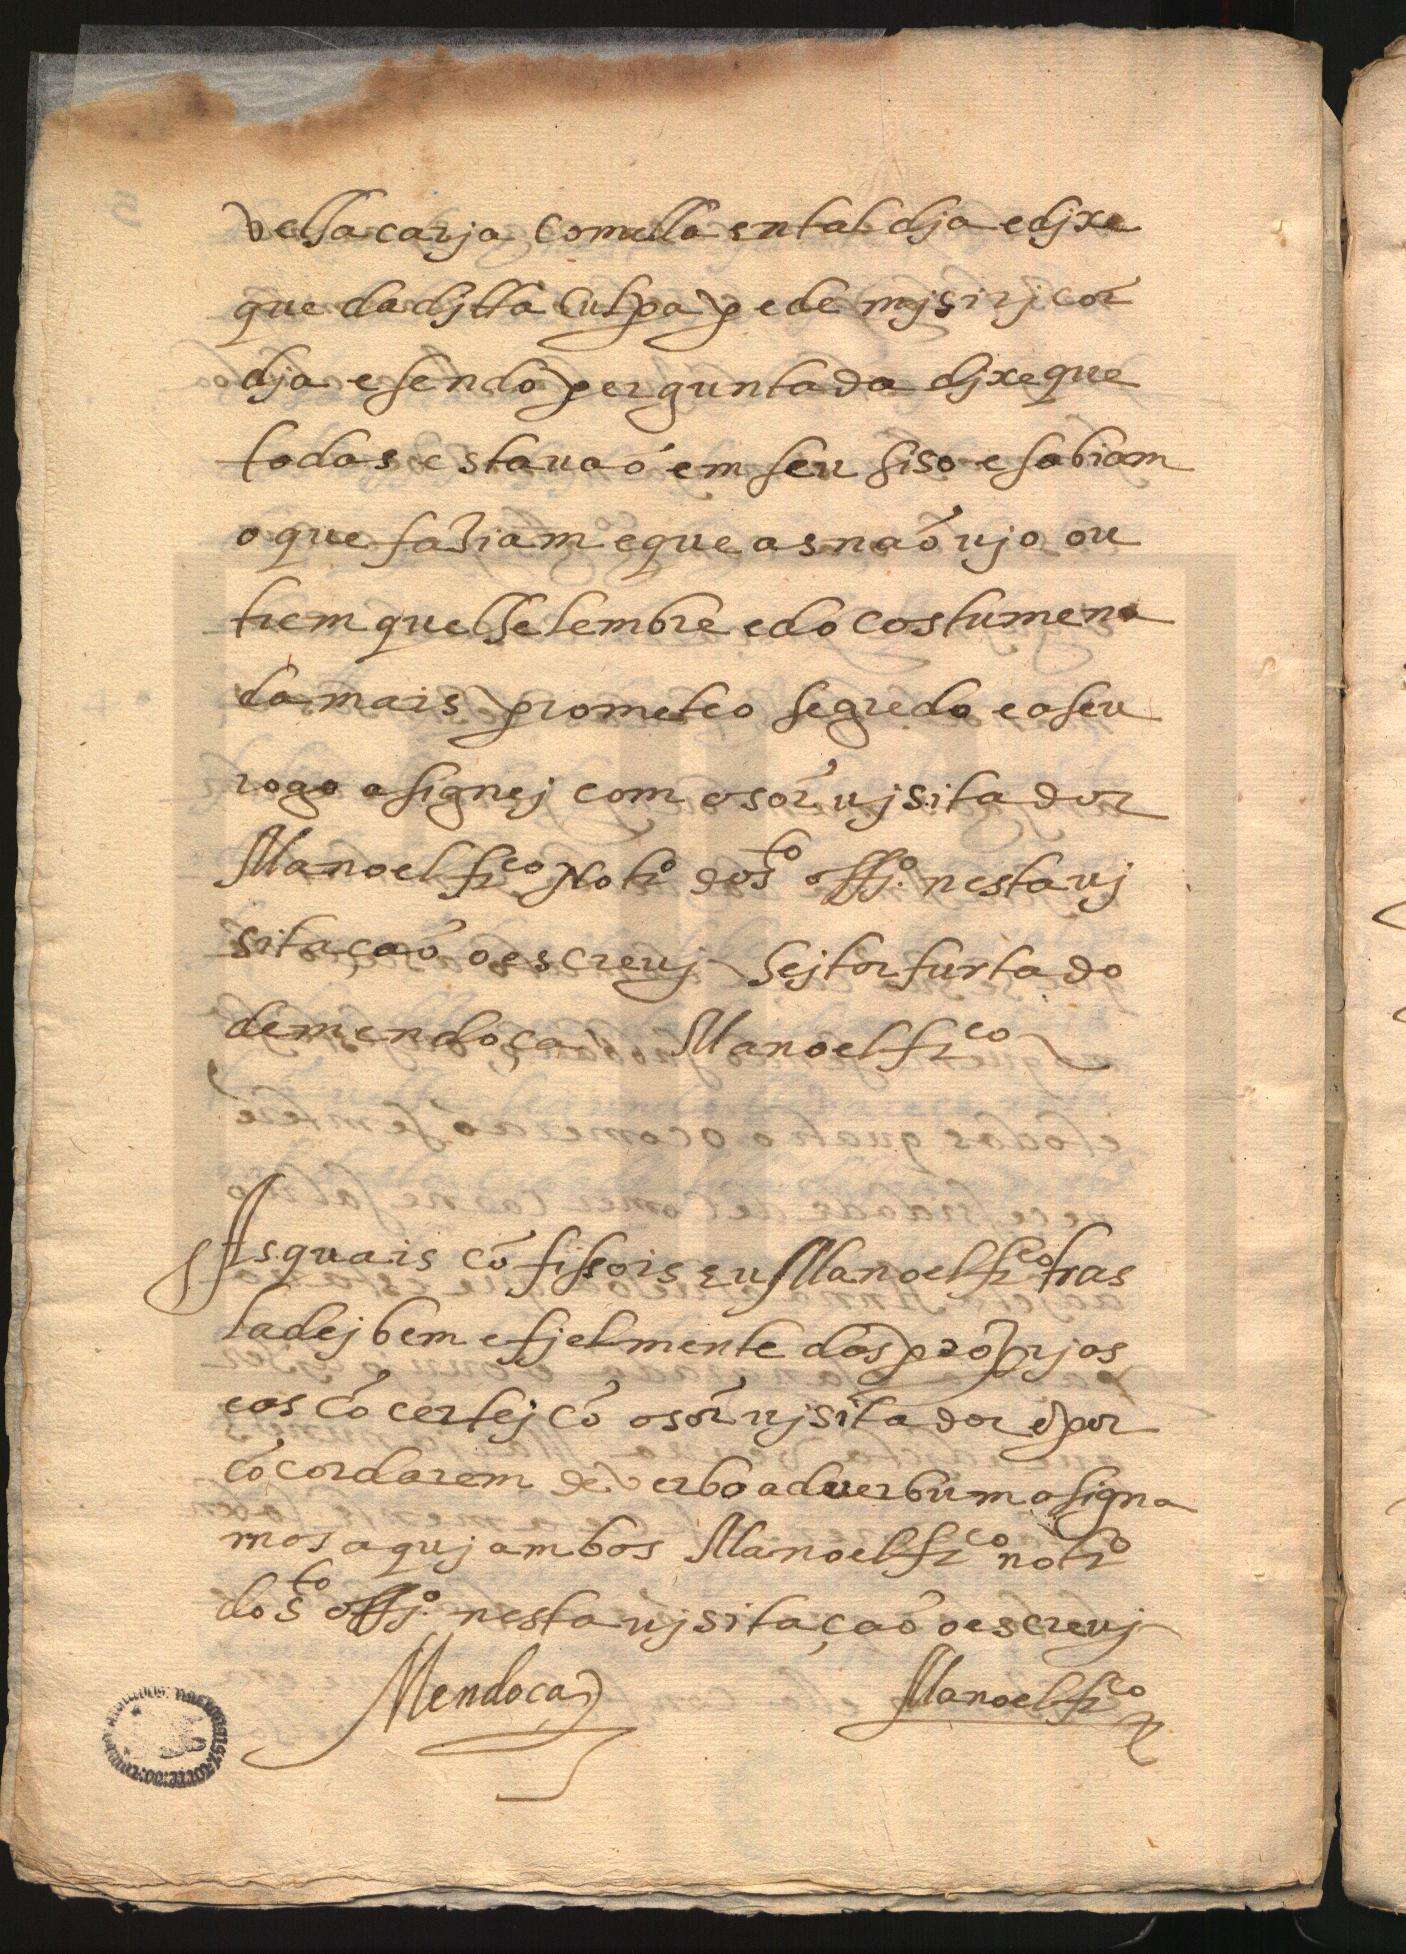 vellacaria comella en tal dja e djxe
que da djtta culpa pede mjsirjcor
dja e sendo perguntada djxe que
todas estauaõ em seu siso e sabiam
o que faziam e que as naõ vjo ou
trem que lhe lembre e do costume na
da mais prometeo segredo e a seu
rogo asignej com o sõr vjsitador
Manoel frco Notro do sto offjo. nesta vj
sitaçaõ o escreuj Hejtor furtado
de mendoça Manoel frco
As quais cõfissois eu Manoel frco tras
ladej bem e fjelmente dos proprjos
e as cõcertej cõ o sõr vjsitador e por
cõcordarem de verbo ad uerbum asigna
mos aquj ambos Manoel frco notro
do sto offjo. nesta vjsitaçaõ o escreuj
Mendoca Manoel frco